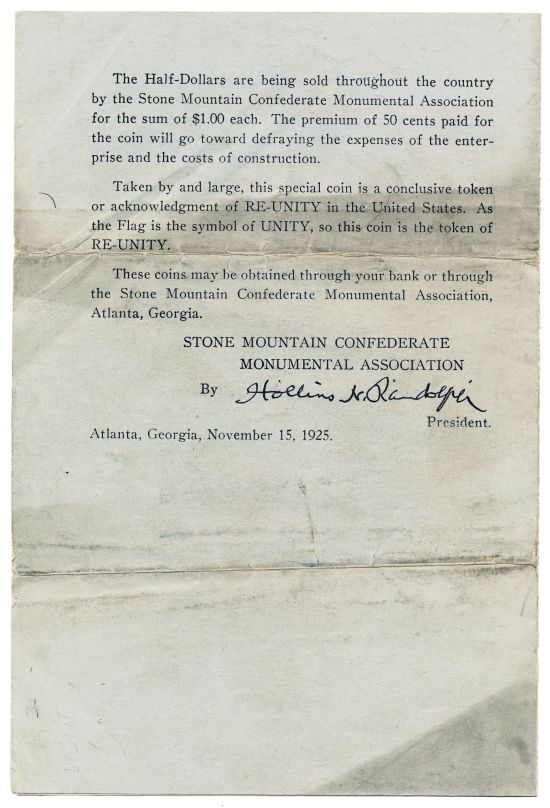 The Half-Dollars are being sold throughout the country
by the Stone Mountain Confederate Monumental Association
for the sum of $1.00 each. The premium of 50 cents paid for
the coin will go toward defraying the expenses of the enter-
prise and the costs of construction.
Taken by and large, this special coin is a conclusive token
or acknowledgment of RE-UNITY in the United States. As
the Flag is the symbol of UNITY, so this coin is the token of
RE-UNITY.
These coins may be obtained through your bank or through
the Stone Mountain Confederate Monumental Association,
Atlanta, Georgia.
STONE MOUNTAIN CONFEDERATE
MONUMENTAL ASSOCIATION
By Hollins N. Randolph
President.
Atlanta, Georgia, November 15, 1925.